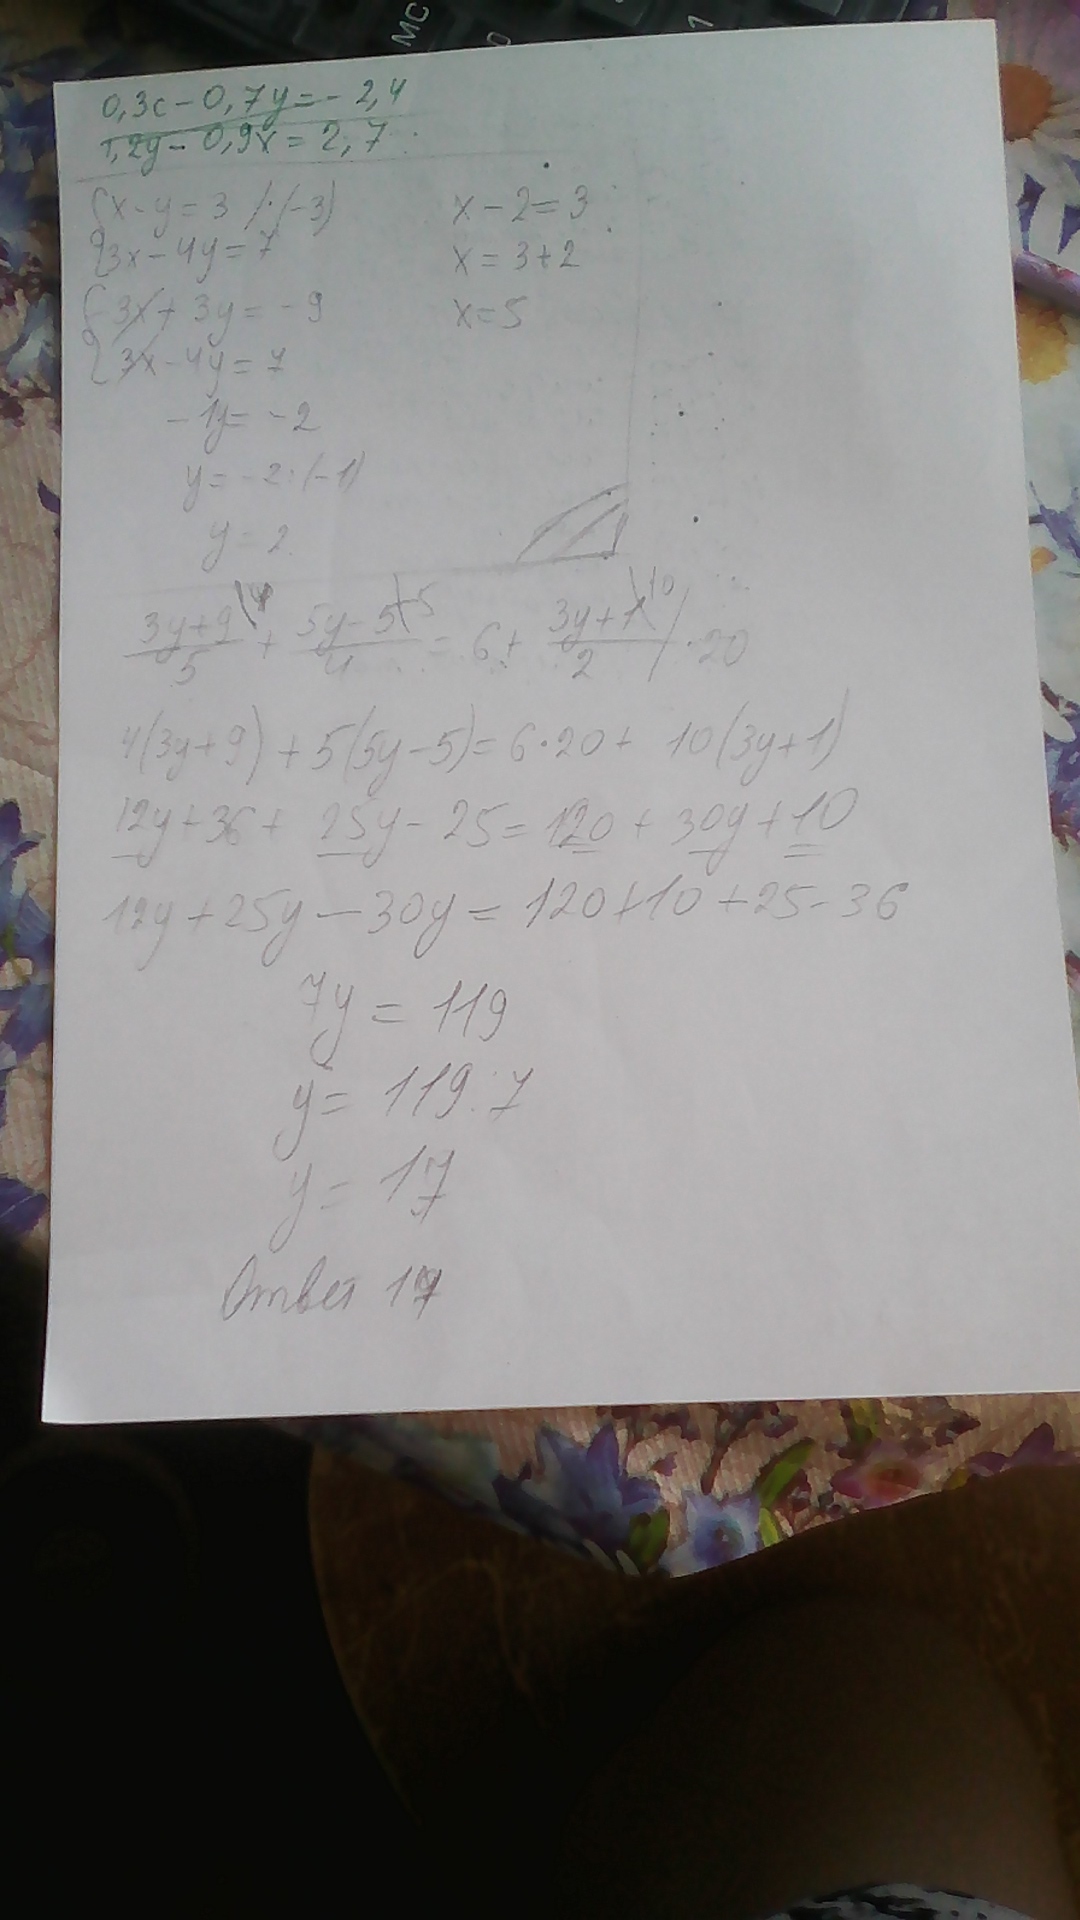 МС
0,3с - 0,7y = - 2,4
1,2y - 0,9x = 2,7
{x - y = 3 /·(-3)
{3x - 4y = 7
{-3x + 3y = -9
{3x - 4y = 7
-1y = -2
y = -2:(-1)
y = 2
x - 2 = 3
x = 3 + 2
x = 5
(3y+9)/5 \4 + (5y-5)/4 \5 = 6 + (3y+1)/2 \10 / ·20
4(3y+9) + 5(5y-5) = 6·20 + 10(3y+1)
12y + 36 + 25y - 25 = 120 + 30y + 10
12y + 25y - 30y = 120 + 10 + 25 - 36
7y = 119
y = 119:7
y = 17
Ответ 17